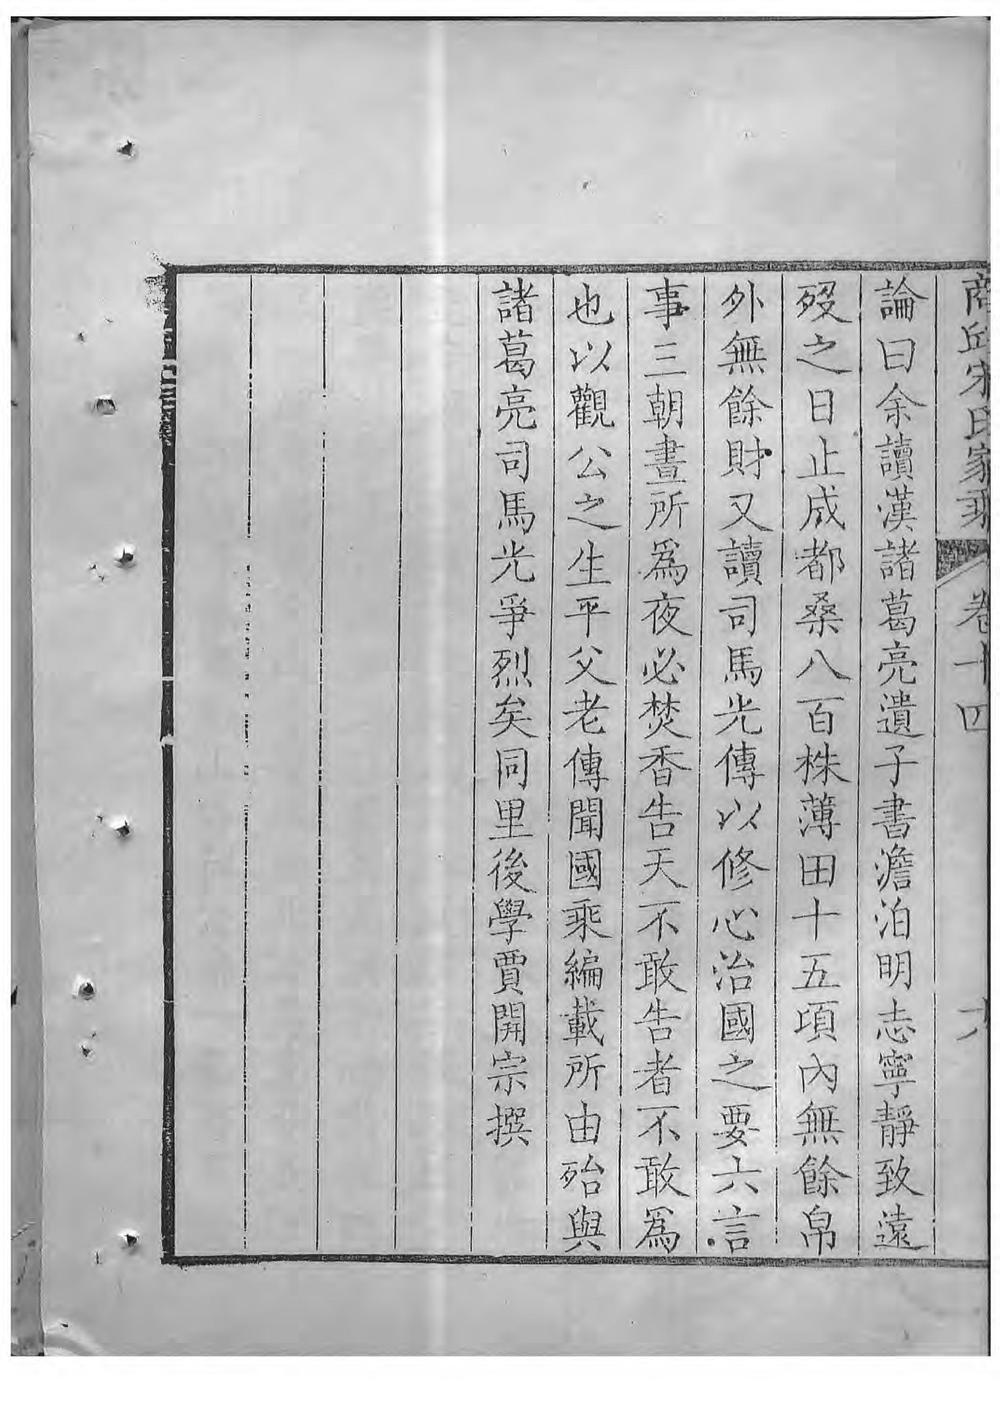 商邱宋氏家乘 卷十四 六
論曰余讀漢諸葛亮遺子書澹泊明志寧靜致遠
歿之日止成都桑八百株薄田十五項內無餘帛
外無餘財又讀司馬光傳以修心治國之要六言
事三朝晝所為夜必焚香告天不敢告者不敢為
也以觀公之生平父老傳聞國乘編載所由殆與
諸葛亮司馬光爭烈矣同里後學賈開宗撰